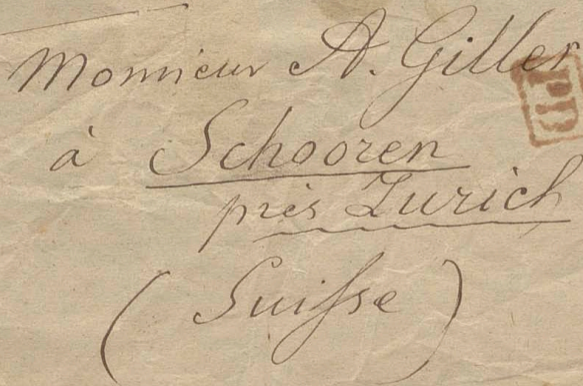 Monsieur A. Giller
à Schooren
près Zurich
(Suisse)
PD